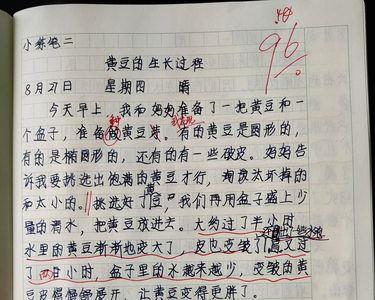 小练笔二
96
黄豆的生长过程
8月27日 星期四 晴
今天早上，我和妈妈准备了一把黄豆和一
个盆子，准备做黄豆芽。有的黄豆是圆形的，
有的是椭圆形的，还有的有一些破皮。妈妈告
诉我要挑选出饱满的黄豆才行，淘汰太坏掉的
和太小的。挑选好了黄豆，我们再用盆子盛上少
量的清水，把黄豆放进去。大约过了半小时
水里的黄豆渐渐地变大了，皮也变皱了。又过
了四小时，盆子里的水越来越少，变皱的黄
豆皮慢慢舒展开，让黄豆变得更胖了。